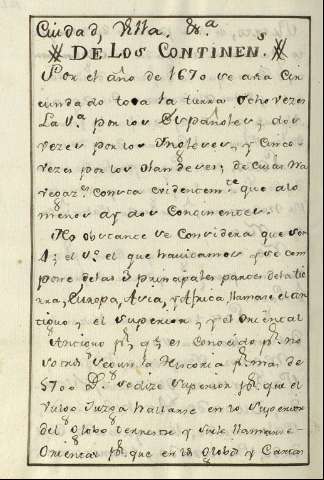 Ciudad, Villa, &.ª
DE LOS CONTINEN.s
Por el año de 1670 se avia Cir
cundado toda la tierra Ocho vezes
La 1.ª por los Españoles, dos
vezes por los Yngleses, y Cinco
vezes por los Olandeses; de Cuias Na
vegaz.s Consta evidentem.te que alo
menos ay dos Continentes.
No obstante se Considera que son
4; el 1.º el que havitamos y se com
pone delas 3 principales partes dela tie
rra, Europa, Asia, y Africa, llamase el an
tiguo, y el Superior, y el Oriental
Antiguo p.r q.e es Conocido p.r no
sotros segun la Historia p.r mas de
5700 se dize Superior p.r que el
Vulgo Juzga hallarse en lo Superior
del globo terrestre y suele llamarse
Oriental p.r que en los globos y Cartas